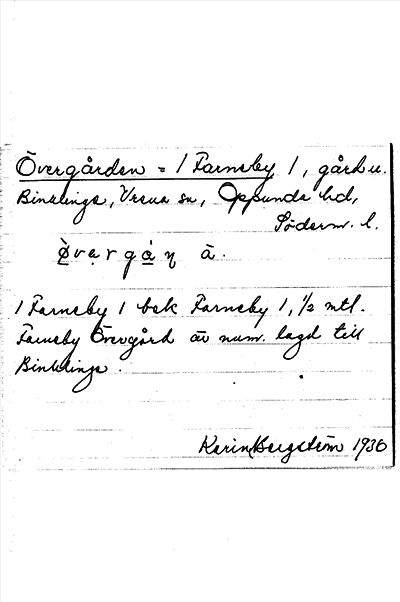 Övergården = / Farneby /, gård u.
Binklinge, Vrena sn, Oppunda hd,
Söderm. l.
ø̀vargǻṇ ā.
/ Farneby / bek Farneby 1, 1/2 mtl.
Farneby Övergård är num. lagd till
Binklinge.
Karin Bergström 1930